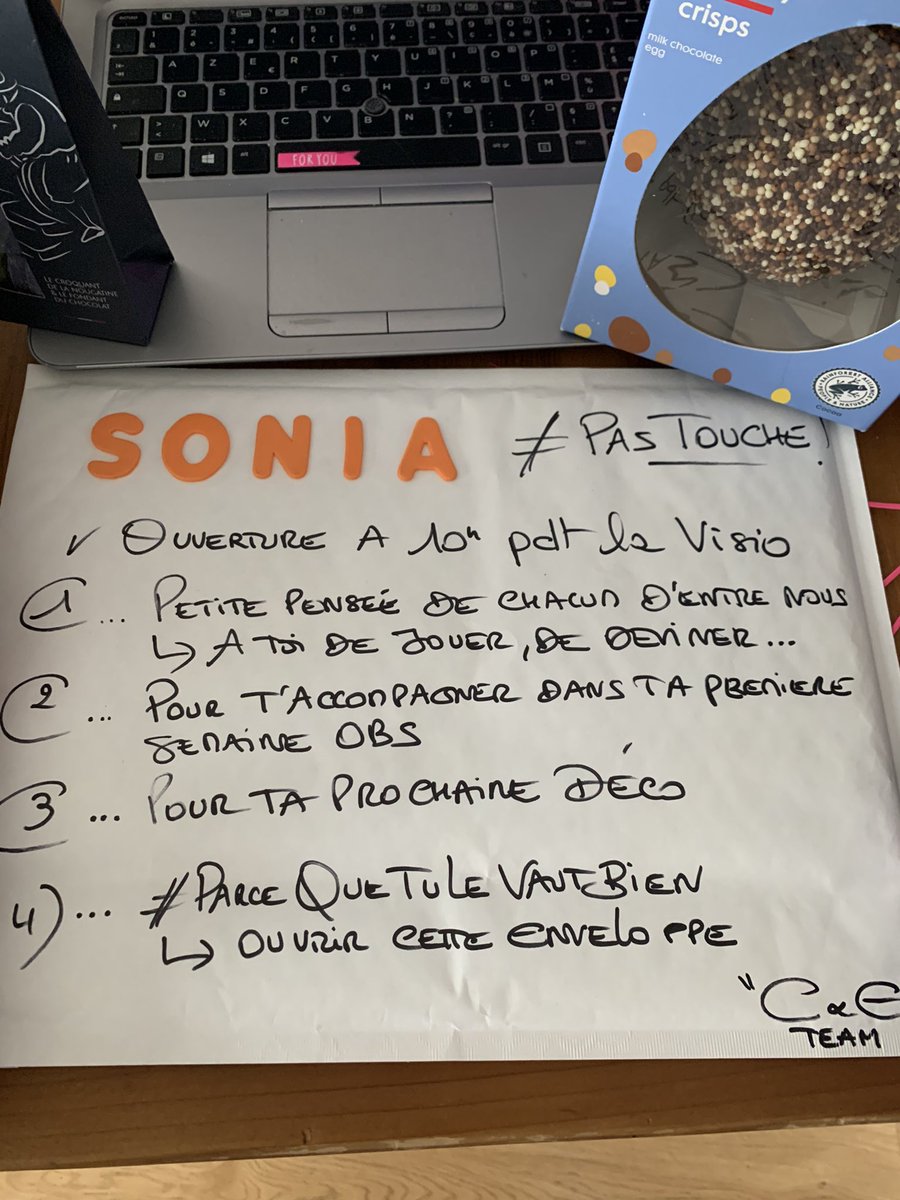 crisps
milk chocolate
egg
A Z E R T Y U I O P
Q S D F G H J K L M
W X C V B N
FOR YOU
LE CROQUANT
DE LA NOUGATINE
& LE FONDANT
DU CHOCOLAT
RAINFOREST ALLIANCE
PEOPLE & NATURE
COCOA
SONIA #PAS TOUCHE!
✓ OUVERTURE A 10h pdt la Visio
1 ... PETITE PENSÉE DE CHACUN D'ENTRE NOUS
↳ A TOI DE JOUER, DE DEVINER...
2 ... POUR T'ACCOMPAGNER DANS TA PREMIERE
SEMAINE OBS
3 ... POUR TA PROCHAINE DÉCO
4) ... #PARCE QUE TU LE VAUT BIEN
↳ OUVRIR CETTE ENVELOPPE
"C&E
TEAM